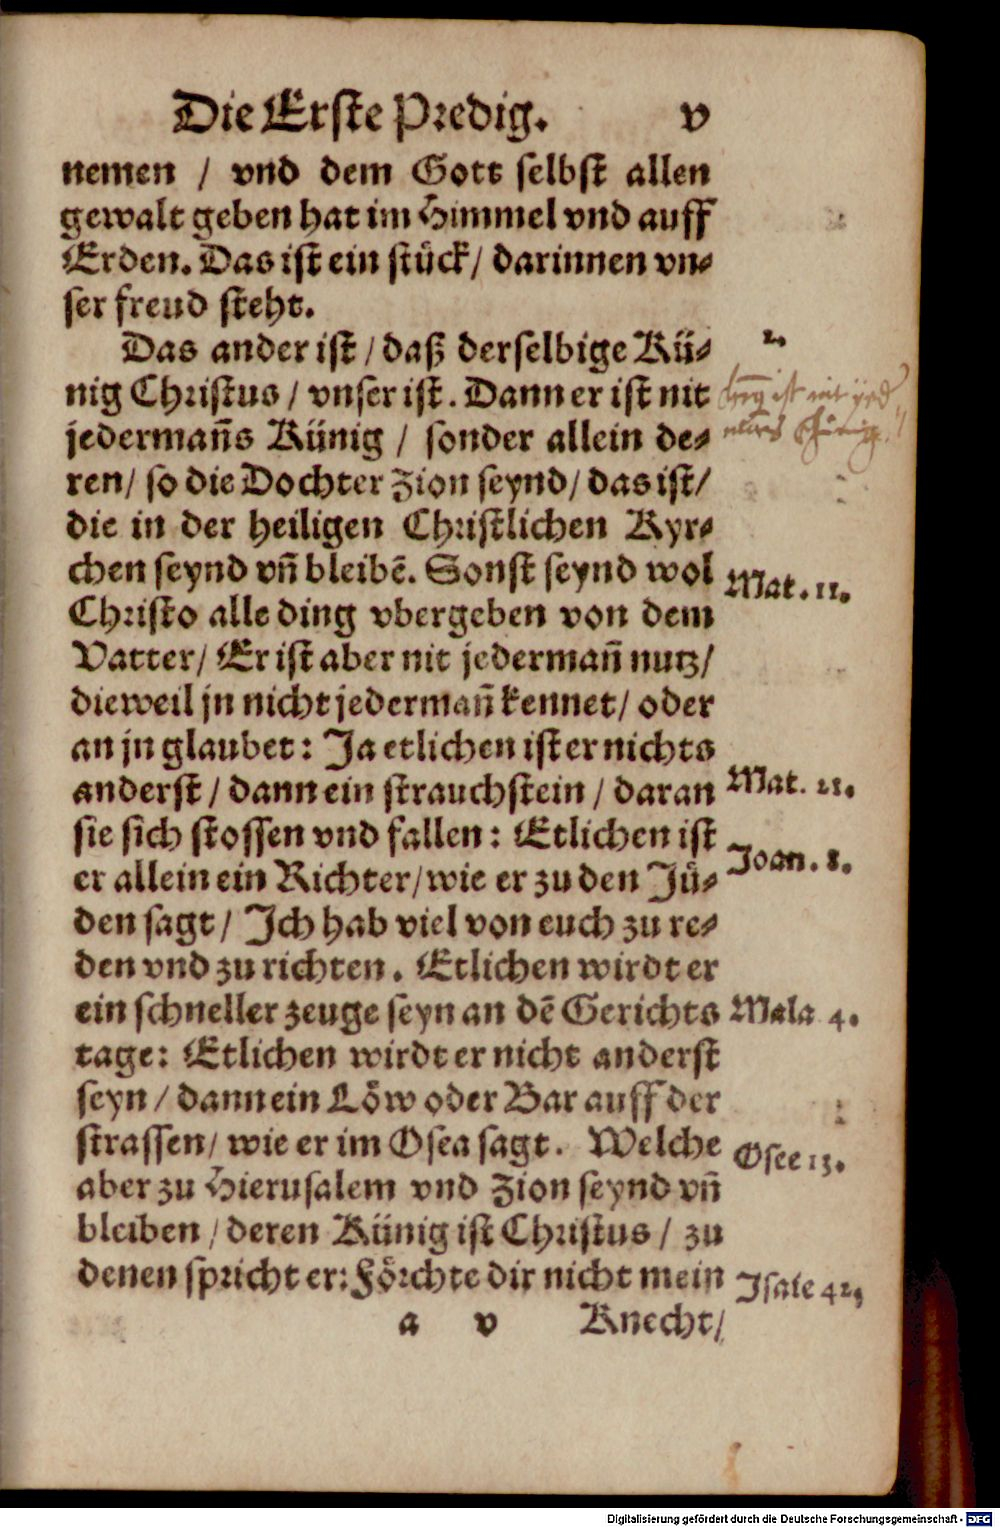 Die Erste Predig. v
nemen / vnd dem Gott selbst allen
gewalt geben hat im Himmel vnd auff
Erden. Das ist ein stück / darinnen vn-
ser freud steht.
Das ander ist / daß derselbige Kü-
2.
nig Christus / vnser ist. Dann er ist nit
ist nit
jedermañs Künig / sonder allein de-
ren / so die Dochter Zion seynd / das ist /
die in der heiligen Christlichen Kyr-
chen seynd vñ bleibē. Sonst seynd wol
Mat. 11.
Christo alle ding vbergeben von dem
Vatter / Er ist aber nit jedermañ nutz /
dieweil jn nicht jedermañ kennet / oder
an jn glaubet: Ja etlichen ist er nichts
anderst / dann ein strauchstein / daran
Mat. 21.
sie sich stossen vnd fallen: Etlichen ist
er allein ein Richter / wie er zu den Jü-
Joan. 8.
den sagt / Ich hab viel von euch zu re-
den vnd zu richten. Etlichen wirdt er
ein schneller zeuge seyn an dē Gerichts
Mala 4.
tage: Etlichen wirdt er nicht anderst
seyn / dann ein Löw oder Bar auff der
strassen / wie er im Osea sagt. Welche
Osee 13.
aber zu Hierusalem vnd Zion seynd vñ
bleiben / deren Künig ist Christus / zu
denen spricht er: Förchte dir nicht mein
Isaie 42,
a v Knecht /
Digitalisierung gefördert durch die Deutsche Forschungsgemeinschaft - DFG